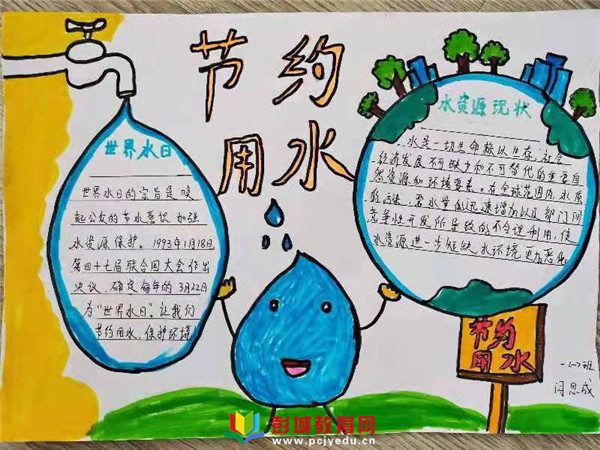 节约
用水
世界水日
世界水日的宗旨是唤
起公众的节水意识,加强
水资源保护。1993年1月18日
第四十七届联合国大会作出
决议,确定每年的3月22日
为“世界水日”。让我们
节约用水,保护环境
水资源现状
水是一切生命赖以生存,社会
经济发展不可缺少和不可替代的重要自
然资源和环境要素。在全球范围内,水质
的污染、需水量的迅速增加以及部门间
竞争性开发所导致的不合理利用,使
水资源进一步短缺,水环境更加恶化
节约
用水
一(一)班
闫思成
彭城教育网
www.pcjyedu.cn